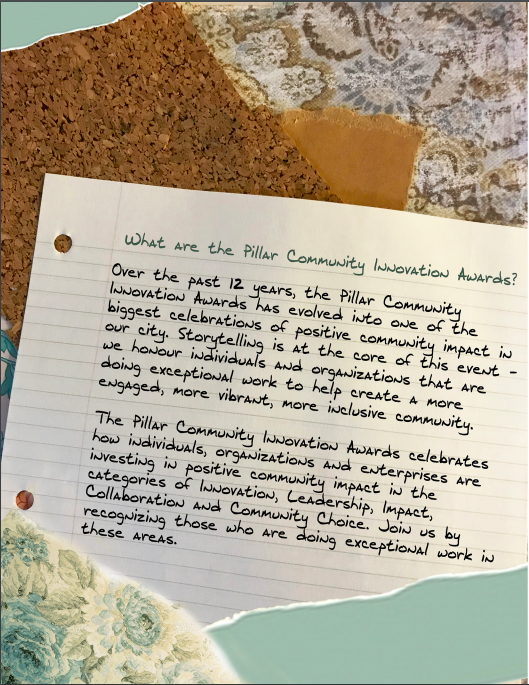 What are the Pillar Community Innovation Awards?
Over the past 12 years, the Pillar Community
Innovation Awards has evolved into one of the
biggest celebrations of positive community impact in
our city. Storytelling is at the core of this event -
we honour individuals and organizations that are
doing exceptional work to help create a more
engaged, more vibrant, more inclusive community.
The Pillar Community Innovation Awards celebrates
how individuals, organizations and enterprises are
investing in positive community impact in the
categories of Innovation, Leadership, Impact,
Collaboration and Community Choice. Join us by
recognizing those who are doing exceptional work in
these areas.